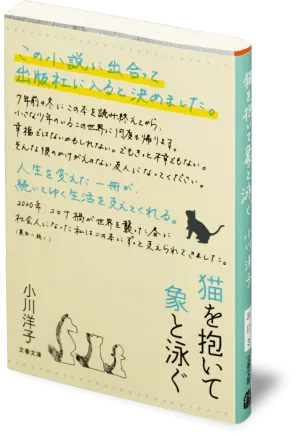 この小説に出合って
出版社に入ると決めました。
7年前の冬にこの本を読み終えてから、
小さな少年のいるこの世界に何度も帰ります。
幸福ではないかもしれない。でもきっと不幸でもない。
そんな彼のかけがえのない友人になってください。
人生を変えた一冊が、
続いてゆく生活を支えてくれる。
2020年、コロナ禍が世界を襲った春に
社会人になった私はこの本にずっと支えられてきました。
猫を抱いて
象と泳ぐ
小川洋子
文春文庫
猫を抱いて象と泳ぐ
小川洋子
文春文庫